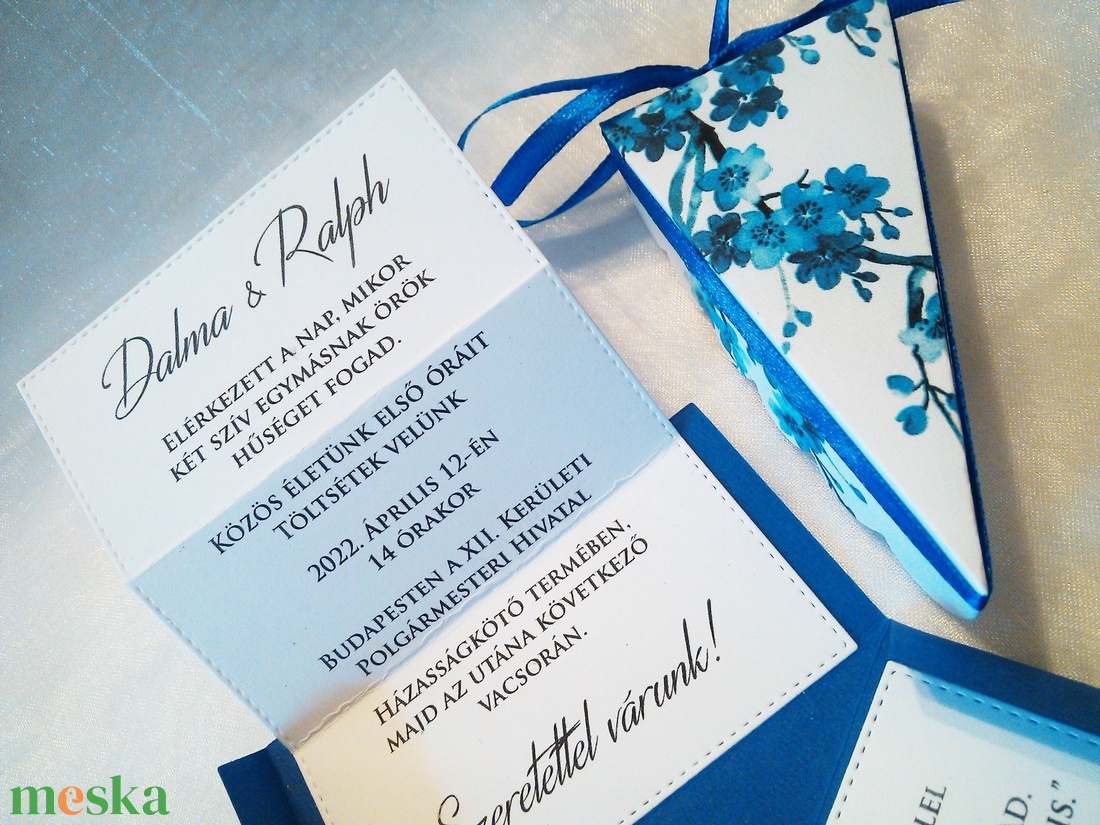 Dalma & Ralph
ELÉRKEZETT A NAP, MIKOR
KÉT SZÍV EGYMÁSNAK ÖRÖK
HŰSÉGET FOGAD.
KÖZÖS ÉLETÜNK ELSŐ ÓRÁIT
TÖLTSÉTEK VELÜNK
2022. ÁPRILIS 12-ÉN
14 ÓRAKOR
BUDAPESTEN A XII. KERÜLETI
POLGÁRMESTERI HIVATAL
HÁZASSÁGKÖTŐ TERMÉBEN,
MAJD AZ UTÁNA KÖVETKEZŐ
VACSORÁN.
Szeretettel várunk!
meska